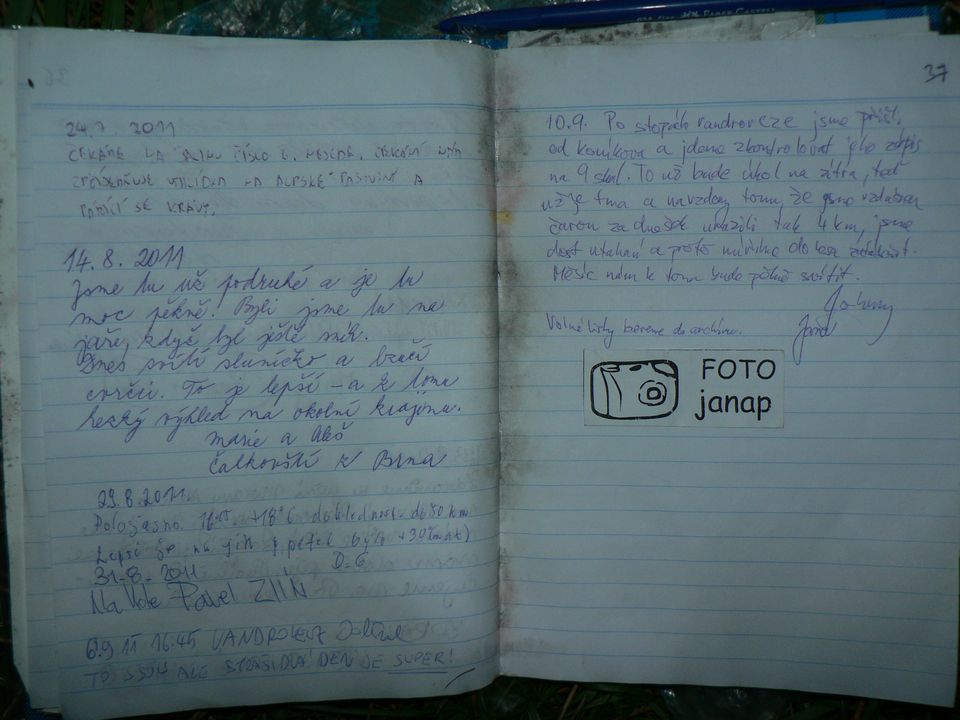 24.7. 2011
ČEKÁME NA ČÍSLO
NA ALPSKÉ PASTVINY A
PASOUCÍ SE KRÁVY.
14.8.2011
Jsme tu už podruhé a je tu
moc pěkně. Byli jsme tu na
jaře, když byl ještě sníh.
Dnes svítí sluníčko a bzučí
cvrčci. To je lepší – a k tomu
hezký výhled na okolní krajinu.
Marie a Aleš
Čalkovští z Brna
29.8.2011.
Polojasno. 16:15 +18°C dohlednost do 50 km
Lepší je na jih v pátek bylo
31-8-2011
Na Kole Pavel ZLÍN
6.9 11 16:45 VANDROVEZ
TO ALE STRAŠIDLA DEN JE SUPER!
37
10.9. Po stopách vandroveze jsme přišli
od Koníkova a jdeme zkontrolovat jeho zápis
na 9 skal. To už bude úkol na zítra, teď
už je tma a navzdory tomu, že jsme vzdušnou
čarou za dnešek urazili tak 4 km, jsme
dost utahaní a proto míříme do lesa zalehnout.
Měsíc nám k tomu bude pěkně svítit.
Johny
Jana
Volné listy bereme do archivu.
FOTO
janap